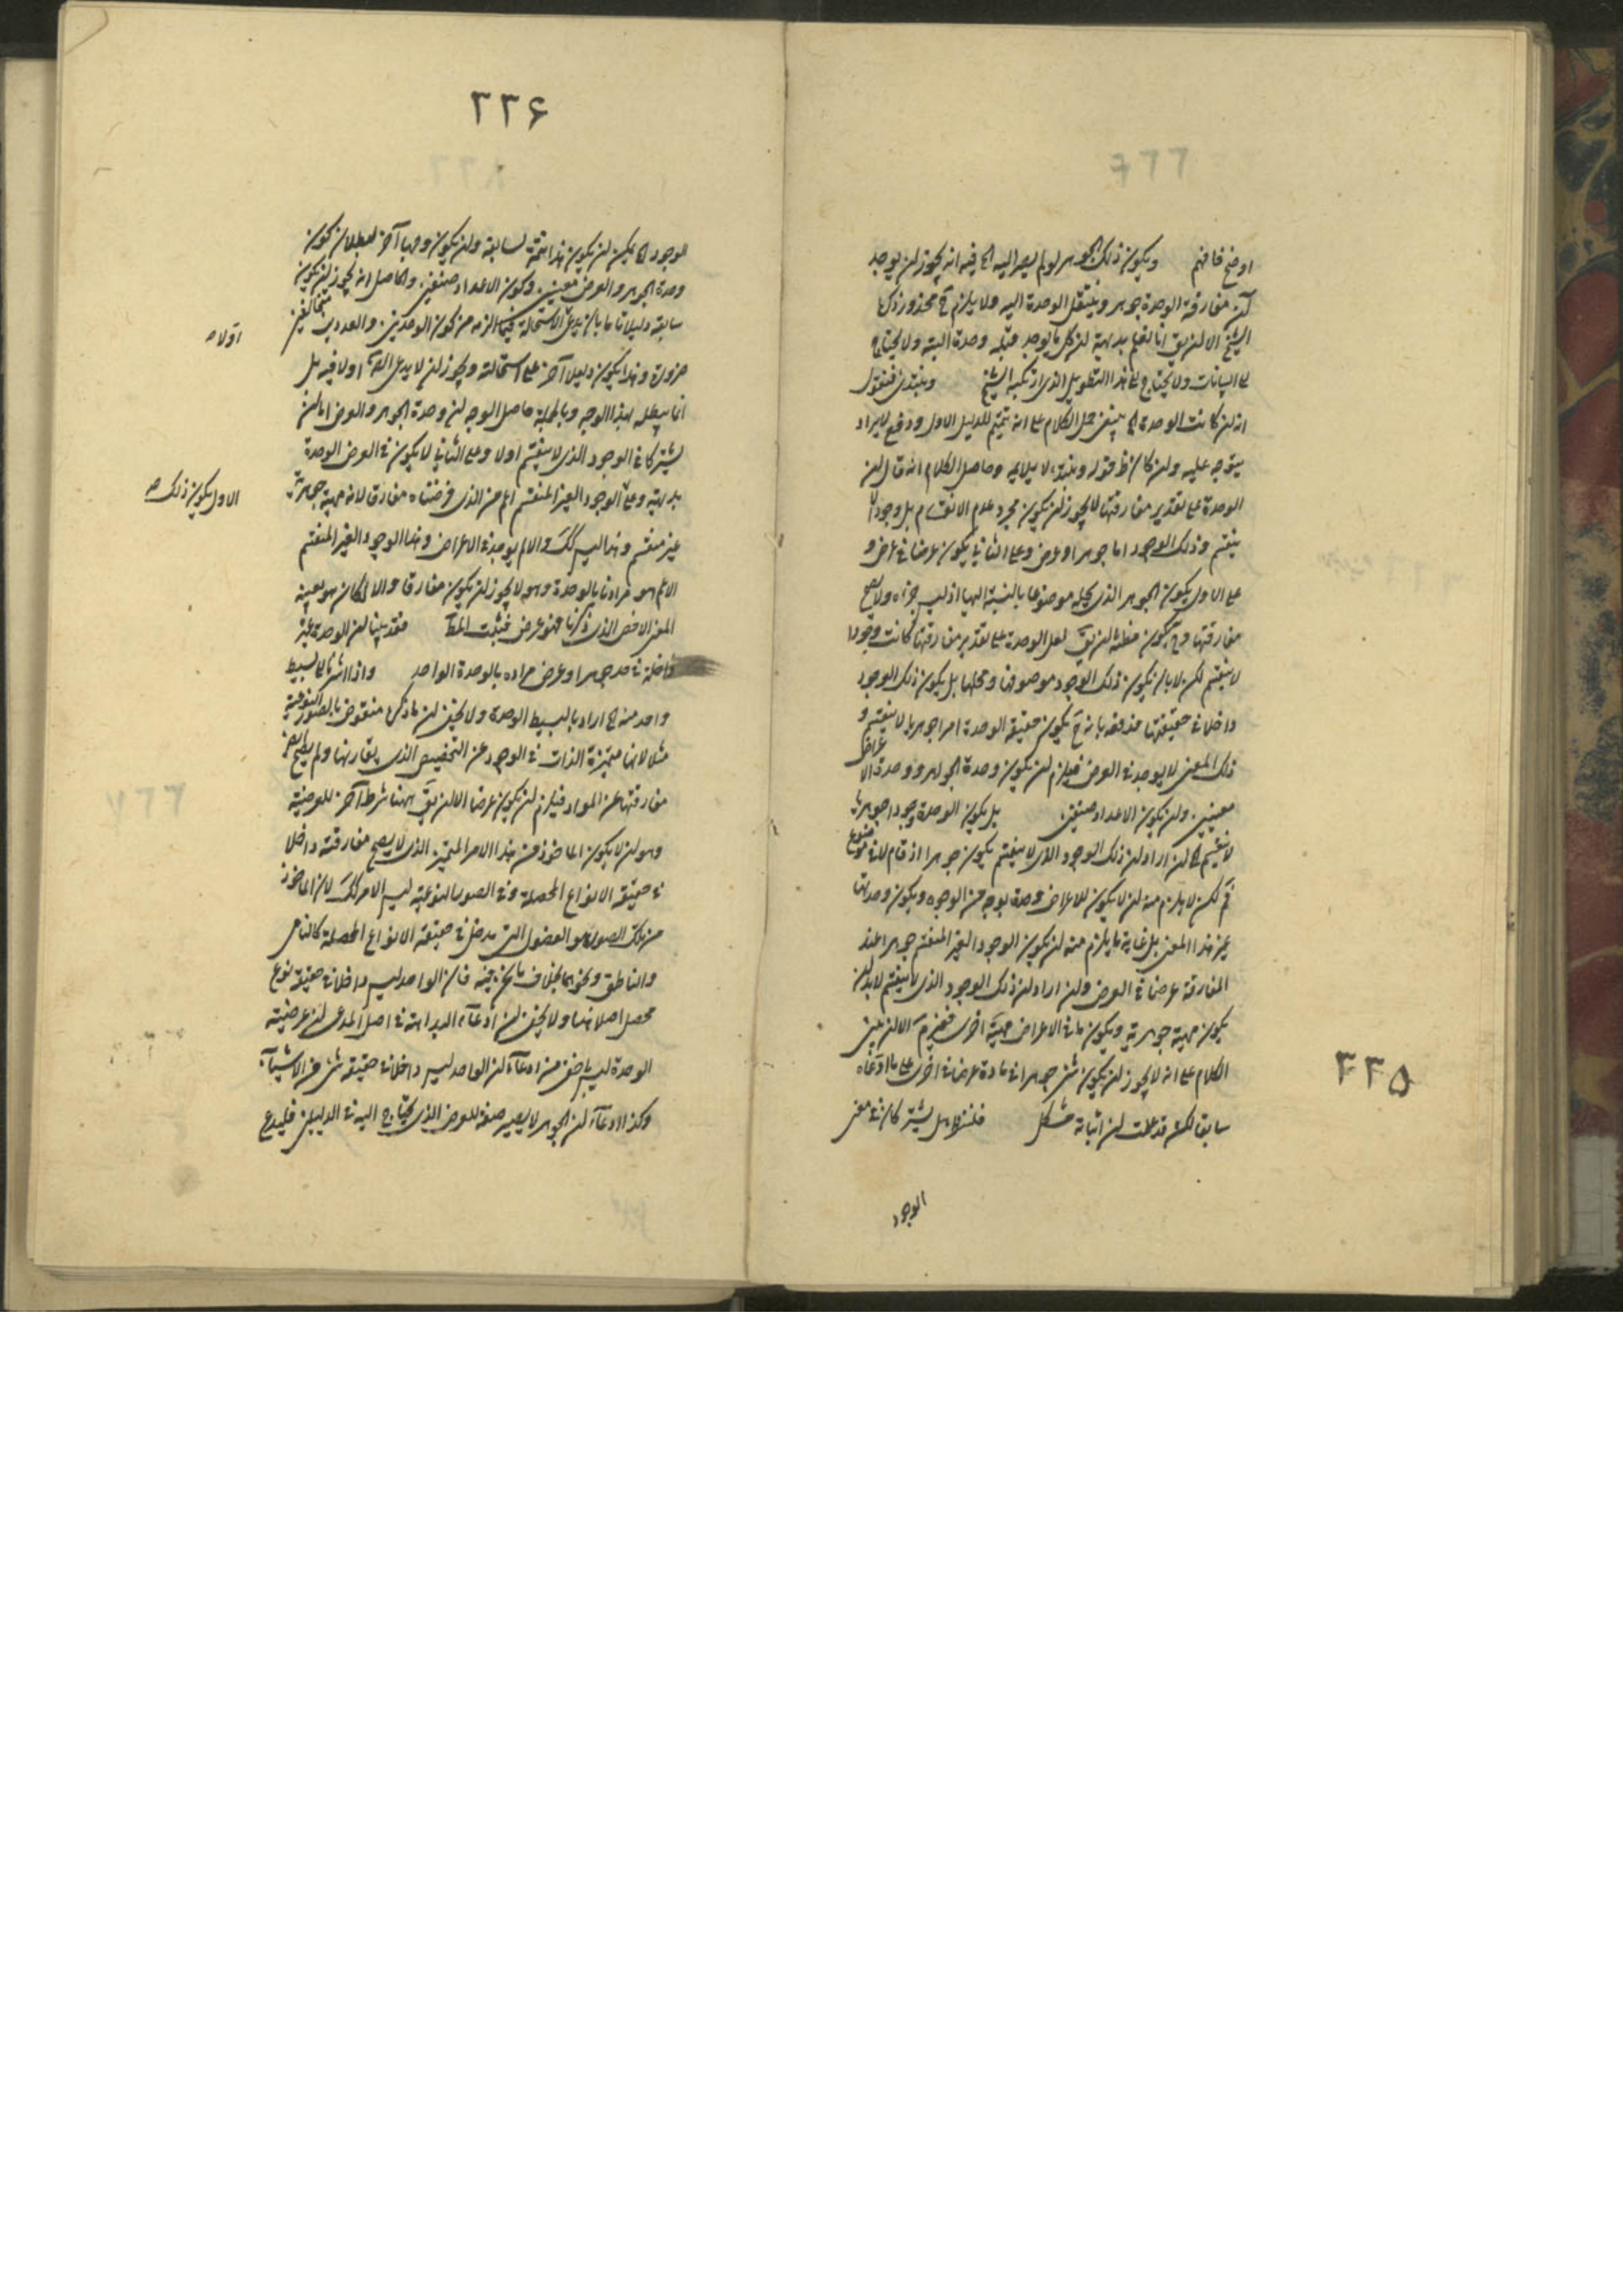 اوضح فافهم ويكون ذلك الجوهر لو لم يصر اليه الخ فيه انه يجوز ان يوجد
آن مفارقة الوحدة جوهر وينتقل الوحدة اليه ولا يلزم ح محذور ذكره
الشيخ الا ان يق انا نعلم بديهة ان كل ما يوجد فله وحدة البتة ولا يحتاج
الى البيانات ولا يحتاج الى هذا التطويل الذى ارتكبه الشيخ ونبتدئ فنقول
انه ان كانت الوحدة الخ ينبغى حمل الكلام على انه تتميم للدليل الاول ودفع لايراد
يتوجه عليه وان كان ظ قوله ونبتدء لا يلايمه وحاصل الكلام انه قال ان
الوحدة على تقدير مفارقتها لا يجوز ان يكون مجرد عدم الانقسام بل وجودا لا
ينقسم وذلك الوجود اما جوهر او عرض وعلى الثانى يكون عرضا فى عرض و
على الاول يكون الجوهر الذى يحله موضوعا بالنسبة اليها اذ ليس جزءه ولا يصح
مفارقتها وح يكون مظنة ان يق لعل الوحدة على تقدير مفارقتها كانت وجودا
لا ينقسم لكن لا بان يكون ذلك الوجود موصوفها ومحلها بل يكون ذلك الوجود
داخلا فى حقيقتها فدفعه بانه ح يكون حقيقة الوحدة امرا جوهريا لا ينقسم و
ذلك المعنى لا يوجد فى العرض فيلزم ان يكون وحدة الجواهر ووحدة الاعراض
معنيين وان يكون الاعداد صنفين بل يكون الوحدة وجودا جوهريا
لا ينقسم الخ ان اراد ان ذلك الوجود الذى لا ينقسم يكون جوهرا اذ قام لا فى موضوع
فم لكن لا يلزم منه ان لا يكون للاعراض وحدة بوجه من الوجوه ويكون وحدتها
غير هذا المعنى بل غاية ما يلزم منه ان يكون الوجود الغير المنقسم جوهرا عند
المفارقة عرضا فى العرض وان اراد ان ذلك الوجود الذى لا ينقسم لا بد ان
يكون مهية جوهرية ويكون ما فى الاعراض مهية اخرى فغير لازم الا ان يبنى
الكلام على انه لا يجوز ان يكون شئ جوهرا فى مادة عرضا فى اخرى على ما ادعاه
سابقا لكن قد علمت ان اثباته مشكل فلننظر هل يشتركان فى معنى
الوجود
٢٣٥
٢٣۶
الوجود الخ يمكن ان يكون هذا تتمة لسابقه وان يكون وجها آخر لبطلان كون
وحدة الجوهر والعرض معنيين وكون الاعداد صنفين والحاصل انه يجوز ان يكون
سابقه دليلا تاما بان يدعى الاستحالة فيما الزمه من كون الوحدتين والعددين متخالفين
ضرورة وهذا يكون دليلا آخر على استحالته ويجوز ان لا يدعى اولا فيه بل
انما يبطله بهذا الوجه وبالجملة حاصل الوجه ان وحدة الجوهر والعرض اما ان
يشتركا فى الوجود الذى لا ينقسم اولا وعلى الثانى لا يكون فى العرض الوحدة
بديهة وعلى الوجود الغير المنقسم اعم من الذى فرضناه مفارقا لانه مهية جوهرية
غير منقسم وهذا ليس كك والا لم يوجد فى الاعراض وهذا الوجود الغير المنقسم
الاعم هو مرادنا بالوحدة وهو لا يجوز ان يكون مفارقا والا لكان هو بعينه
المعنى الاخص الذى ذكرنا فهو عرض فيثبت المط فقد بينا ان الوحدة غير
داخلة فى حد جوهر او عرض مراده بالوحدة الواحد واذا اشرنا الى بسيط
واحد منه الخ اراد بالبسيط الوحدة ولا يخفى ان ما ذكره منقوض بالصور النوعية
مثلا لانها متميزة الذات فى الوجود عن التخصيص الذى يقارنها ولم يصح
مفارقتها عن المواد فيلزم ان يكون عرضا الا ان يق ههنا شرط آخر للعرضية
وهو ان لا يكون الماخوذ من هذا الامر المتميز الذى لا يصح مفارقته داخلا
فى حقيقة الانواع المحصلة وفى الصور النوعية ليس الامر كك لان الماخوذ
من تلك الصور هو الفصول التى تدخل فى حقيقة الانواع المحصلة كالنامى
والناطق ونحوهما بخلاف ما نحن فيه فان الواحد ليس داخلا فى حقيقة نوع
محصل اصلا هذا ولا يخفى ان ادعآء البداهة فى اصل المدعى ان عرضية
الوحدة ليس باخفى من ادعآء ان الواحد ليس داخلا فى حقيقة شئ من الاشيآء
وكذا ادعآء ان الجوهر لا يصير صفة للعرض الذى يحتاج اليه فى الدليلين فليدع
اولا صح
الاول يكون ذلك صح